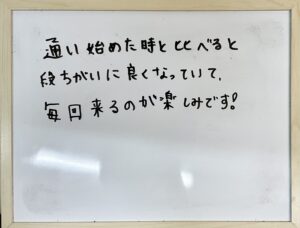 通い始めた時と比べると
段ちがいに良くなっていて、
毎回来るのが楽しみです!